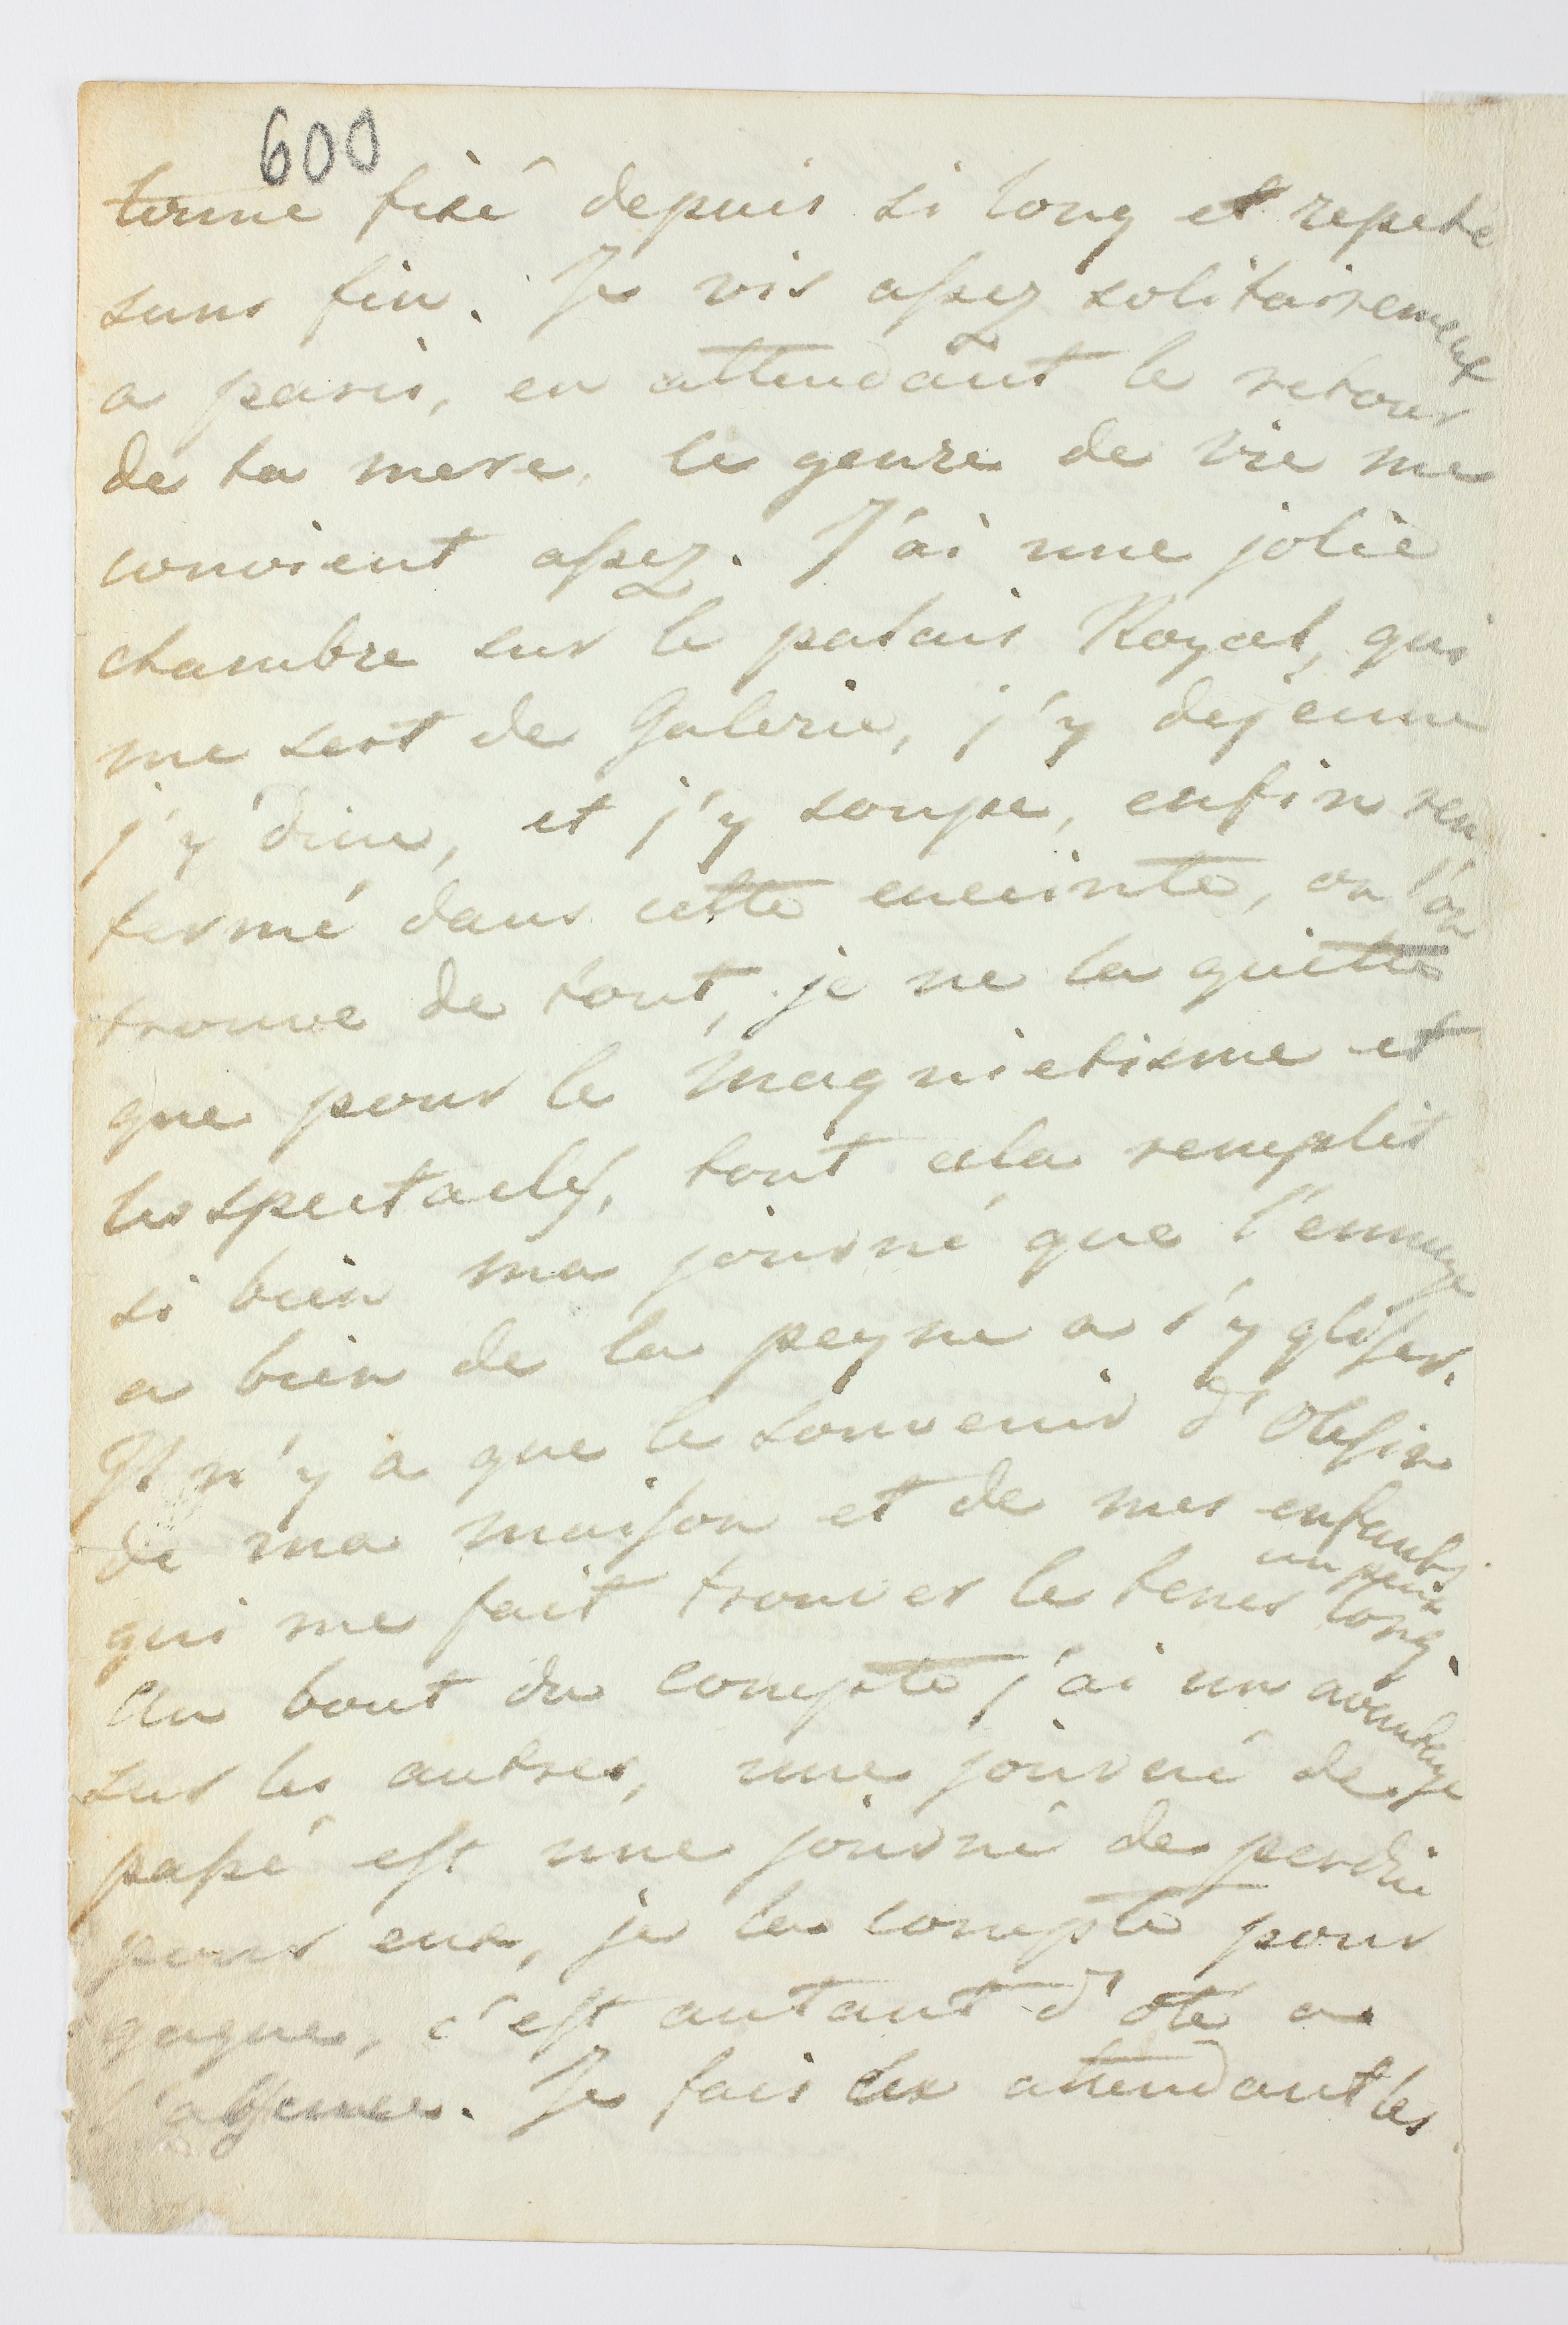 600
terme fixé depuis si long et repete
sans fin. Je vis assez solitairement
a paris, en attendant le retour
de ta mere. le genre de vie me
convient assez. J'ai une jolie
chambre sur le palais Royal, qui
me sert de Galerie, j'y dejeune
j'y dine, et j'y soupe, enfin ren
fermé dans cette enceinte, ou l'on
trouve de tout, je ne la quitte
que pour le magnietisme et
les spectacles, tout cela remplit
si bien ma journé que l'ennuye
a bien de la peyne a s'y glisser.
Il n'y a que le souvenir d'Olesin
de ma maison et de mes enfants
qui me fait trouver le tems un peux long.
Au bout du compte j'ai un avantage
sur les autres, une journé de
passé est une journé de perdue
pour eux, je la compte pour
gagné, c'est autant d'oté a
l'absence. Je fais en attendant les